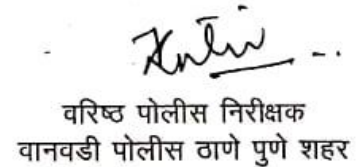 वरिष्ठ पोलीस निरीक्षक
वानवडी पोलीस ठाणे पुणे शहर